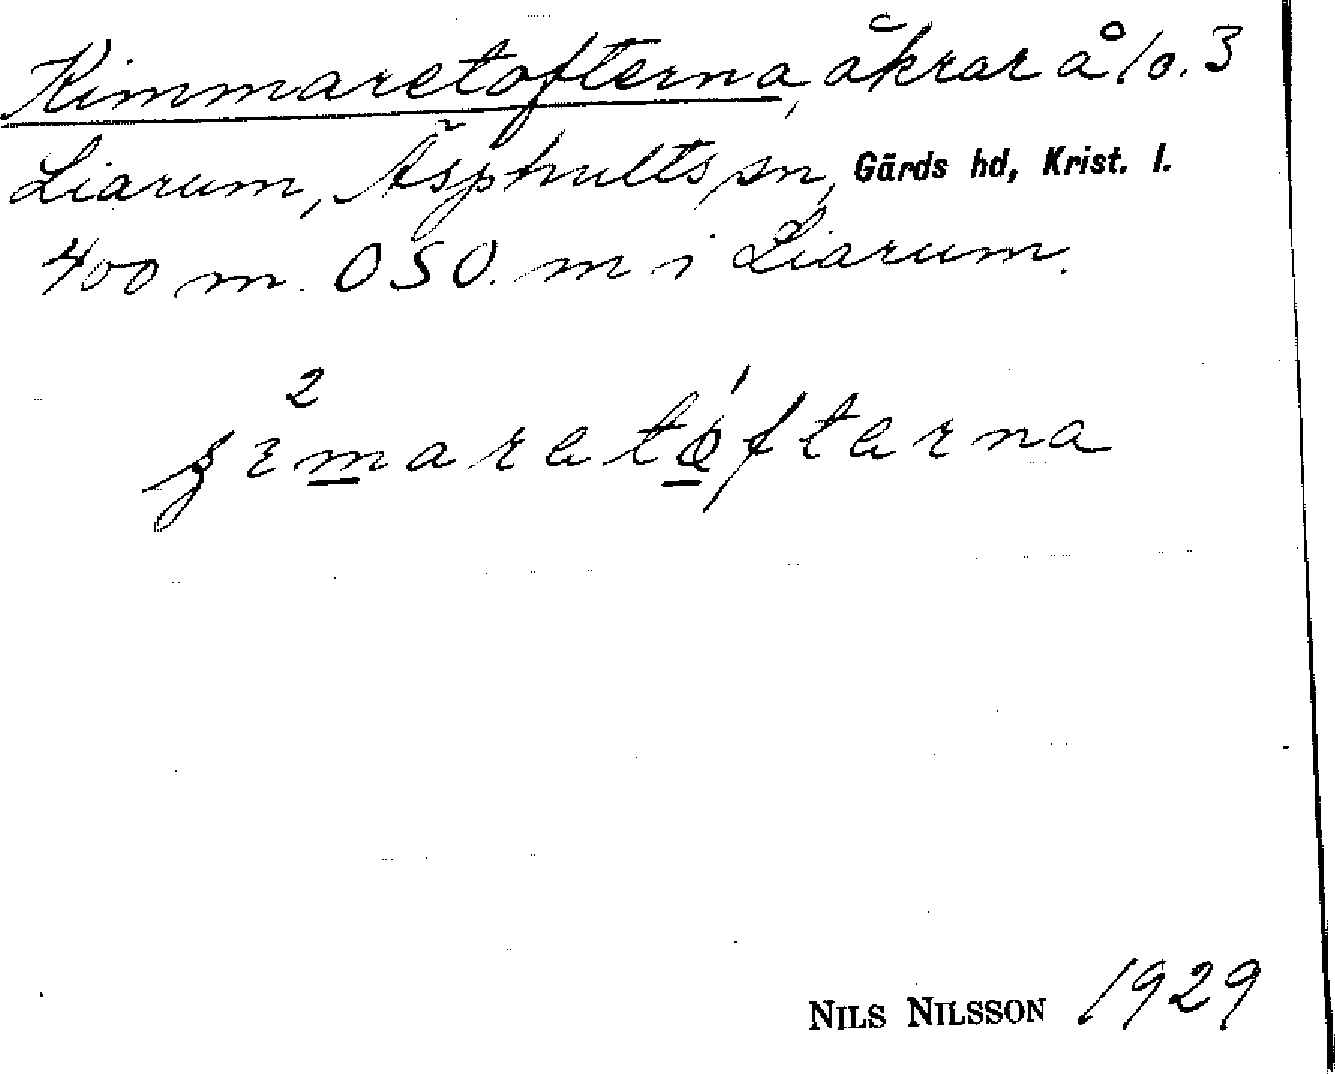 Kimmaretofterna, åkrar å lo. 3
Liarum, Äsphults sn, Gärds hd, Krist. l.
400 m. OSO. m i Liarum.
NILS NILSSON 1929